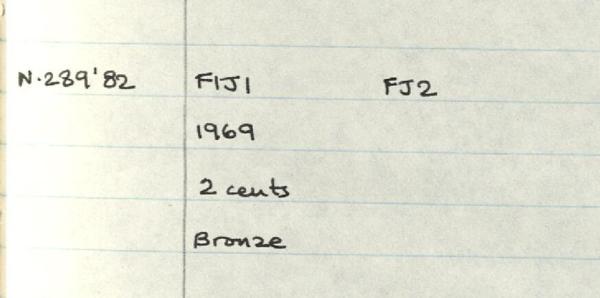 N.289'82 FIJI FJ2
1969
2 cents
Bronze